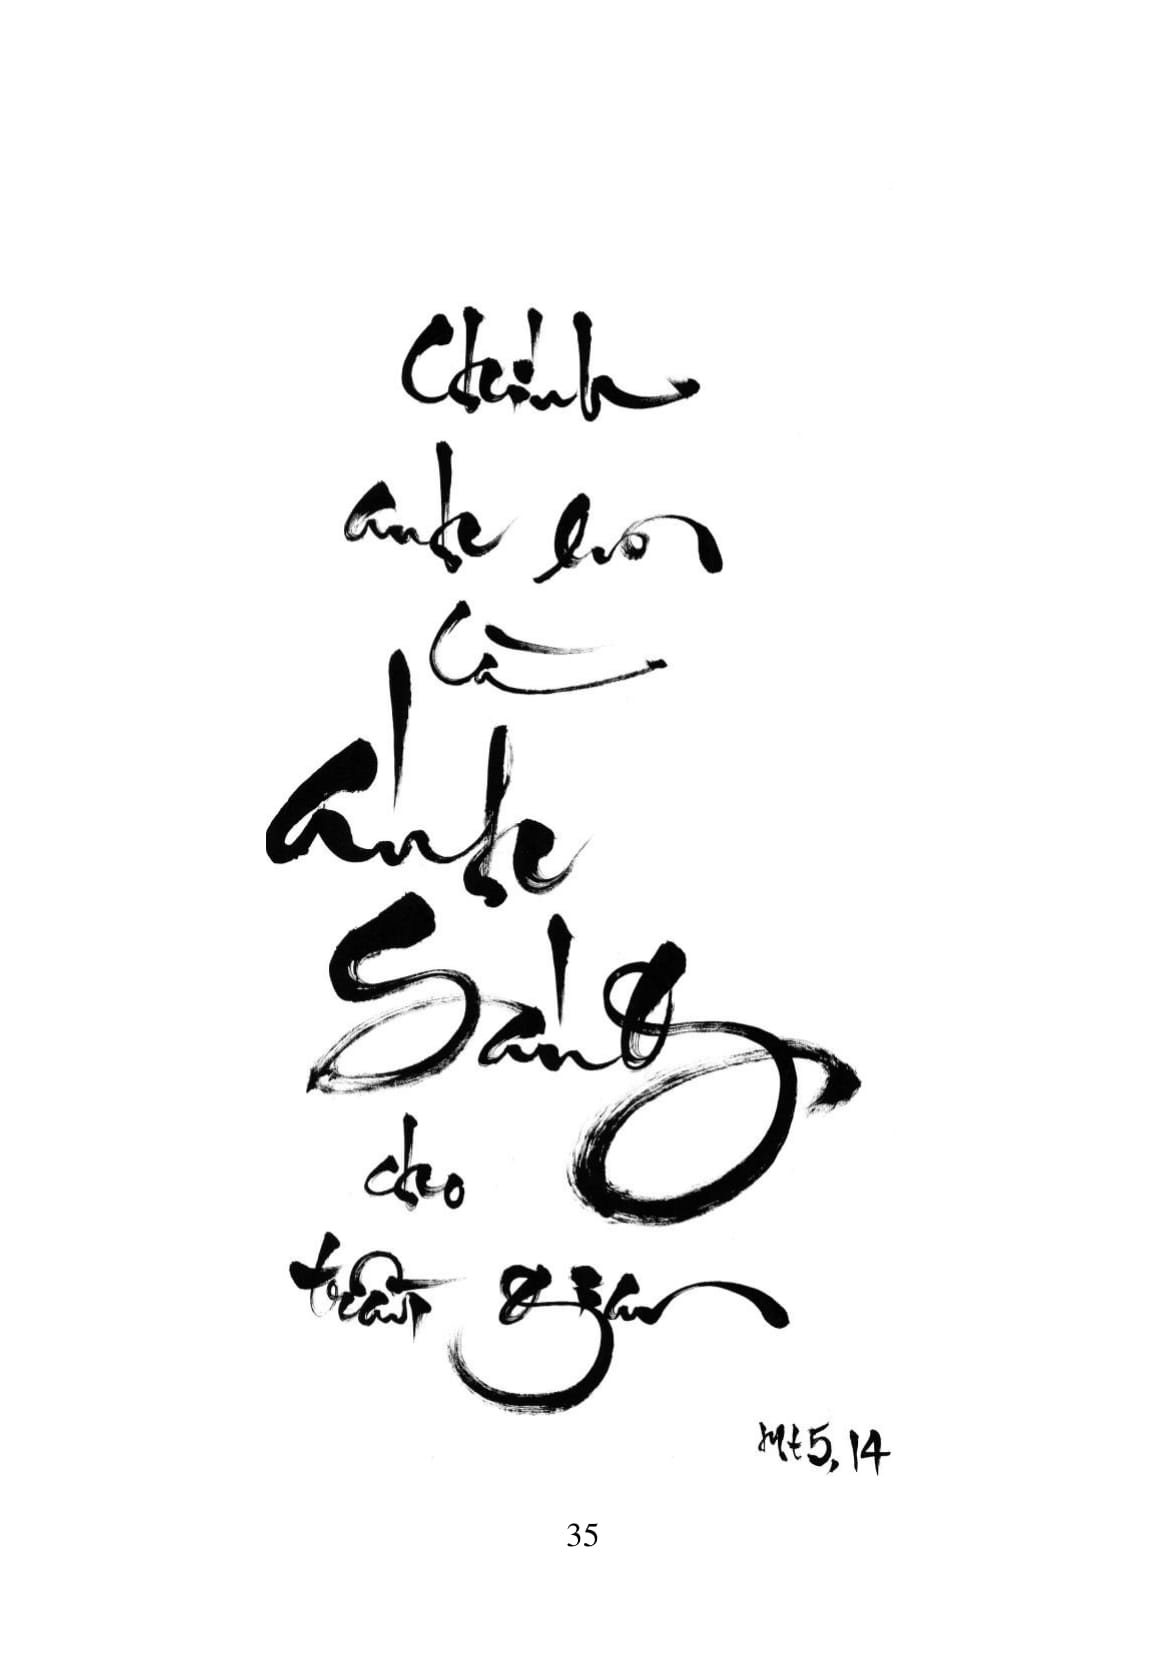 Chính
anh em
là
ánh
sáng
cho
trần gian
Mt 5, 14
35